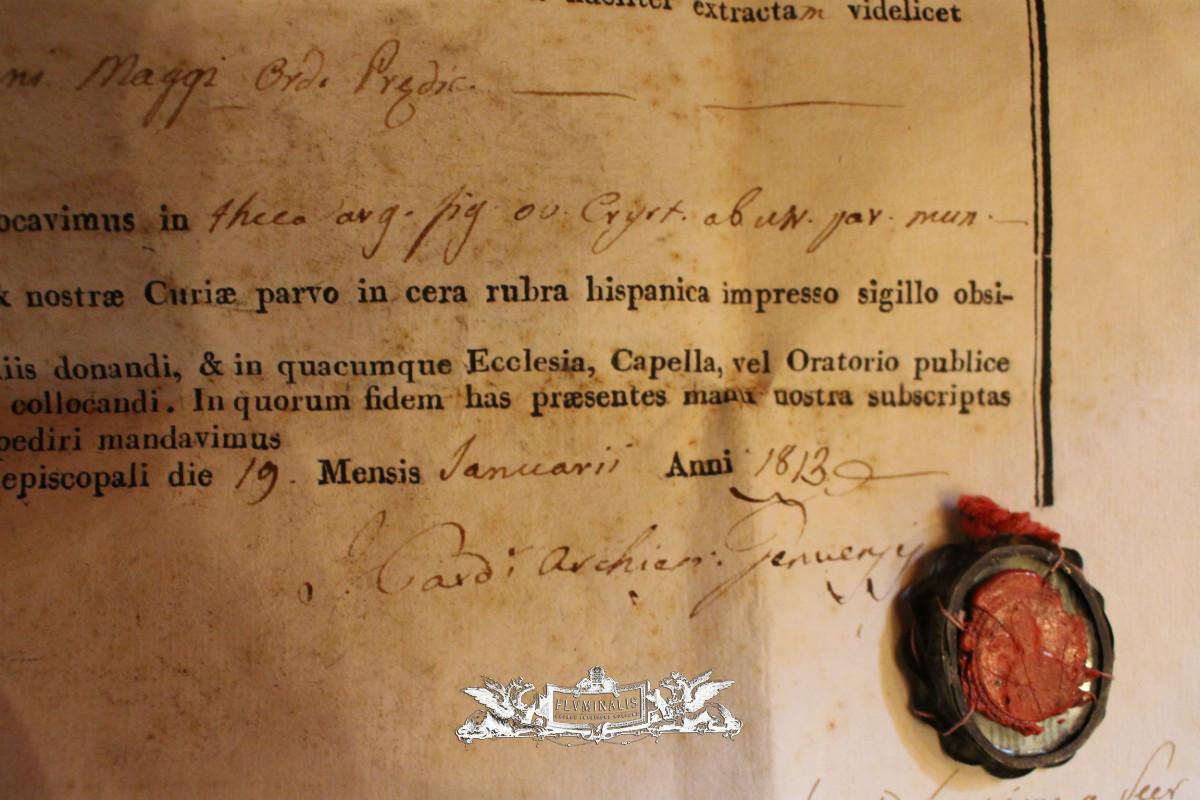 extractam videlicet
Maggi Ord. Prędic.
ocavimus in theca arg. fig. ov. Cryst. ab un. par. mun.
nostræ Curiæ parvo in cera rubra hispanica impresso sigillo obsi-
iis donandi, & in quacumque Ecclesia, Capella, vel Oratorio publice
collocandi. In quorum fidem has præsentes manu nostra subscriptas
pediri mandavimus
episcopali die 19. Mensis Januarii Anni 1813
J Card. Archiep.
FLVMINALIS